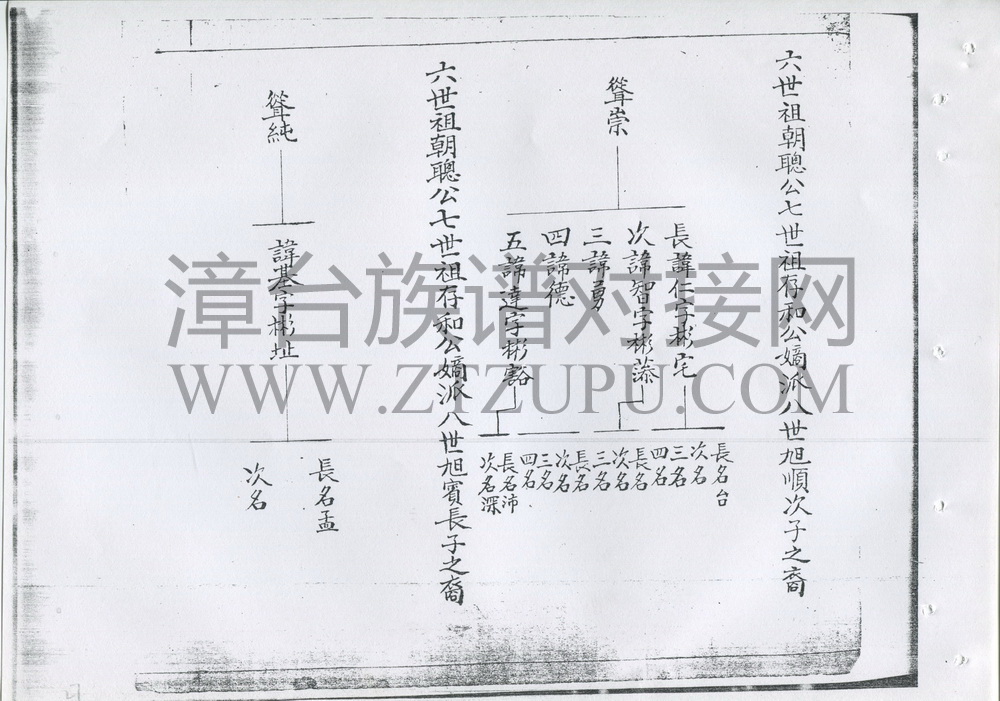 六世祖朝聰公七世祖存和公嫡派八世旭順次子之裔
聳崇
長諱仁字彬宅
次諱智字彬蒤
三諱勇
四諱德
五諱達字彬豁
長名台
次名
三名
四名
長名
次名
三名
長名
次名
三名
四名
長名沛
次名深
六世祖朝聰公七世祖存和公嫡派八世旭賓長子之裔
聳純
諱基字彬址
長名孟
次名
漳台族谱对接网
WWW.ZTZUPU.COM